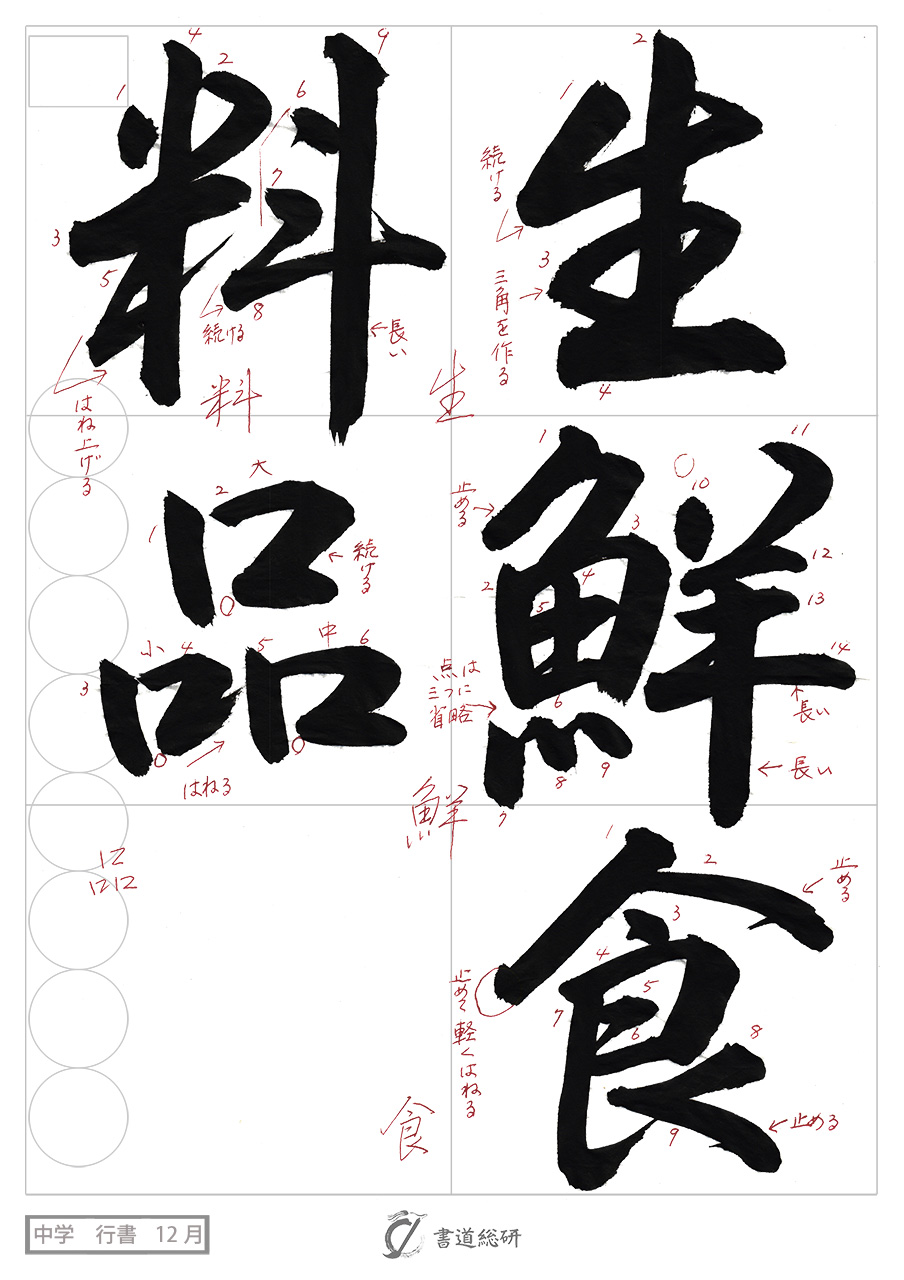 生
1
2
3
4
続ける
三角を作る
生
鮮
1
2
3
4
5
6
7
8
9
10
11
12
13
14
止める
点は
三つに
省略
長い
長い
鮮
食
1
2
3
4
5
6
7
8
9
止める
止めて軽くはねる
止める
食
料
1
2
3
4
5
6
7
8
9
続ける
長い
はね上げる
料
品
大
小
中
1
2
3
4
5
6
続ける
はねる
品
中学 行書 12月
書道総研